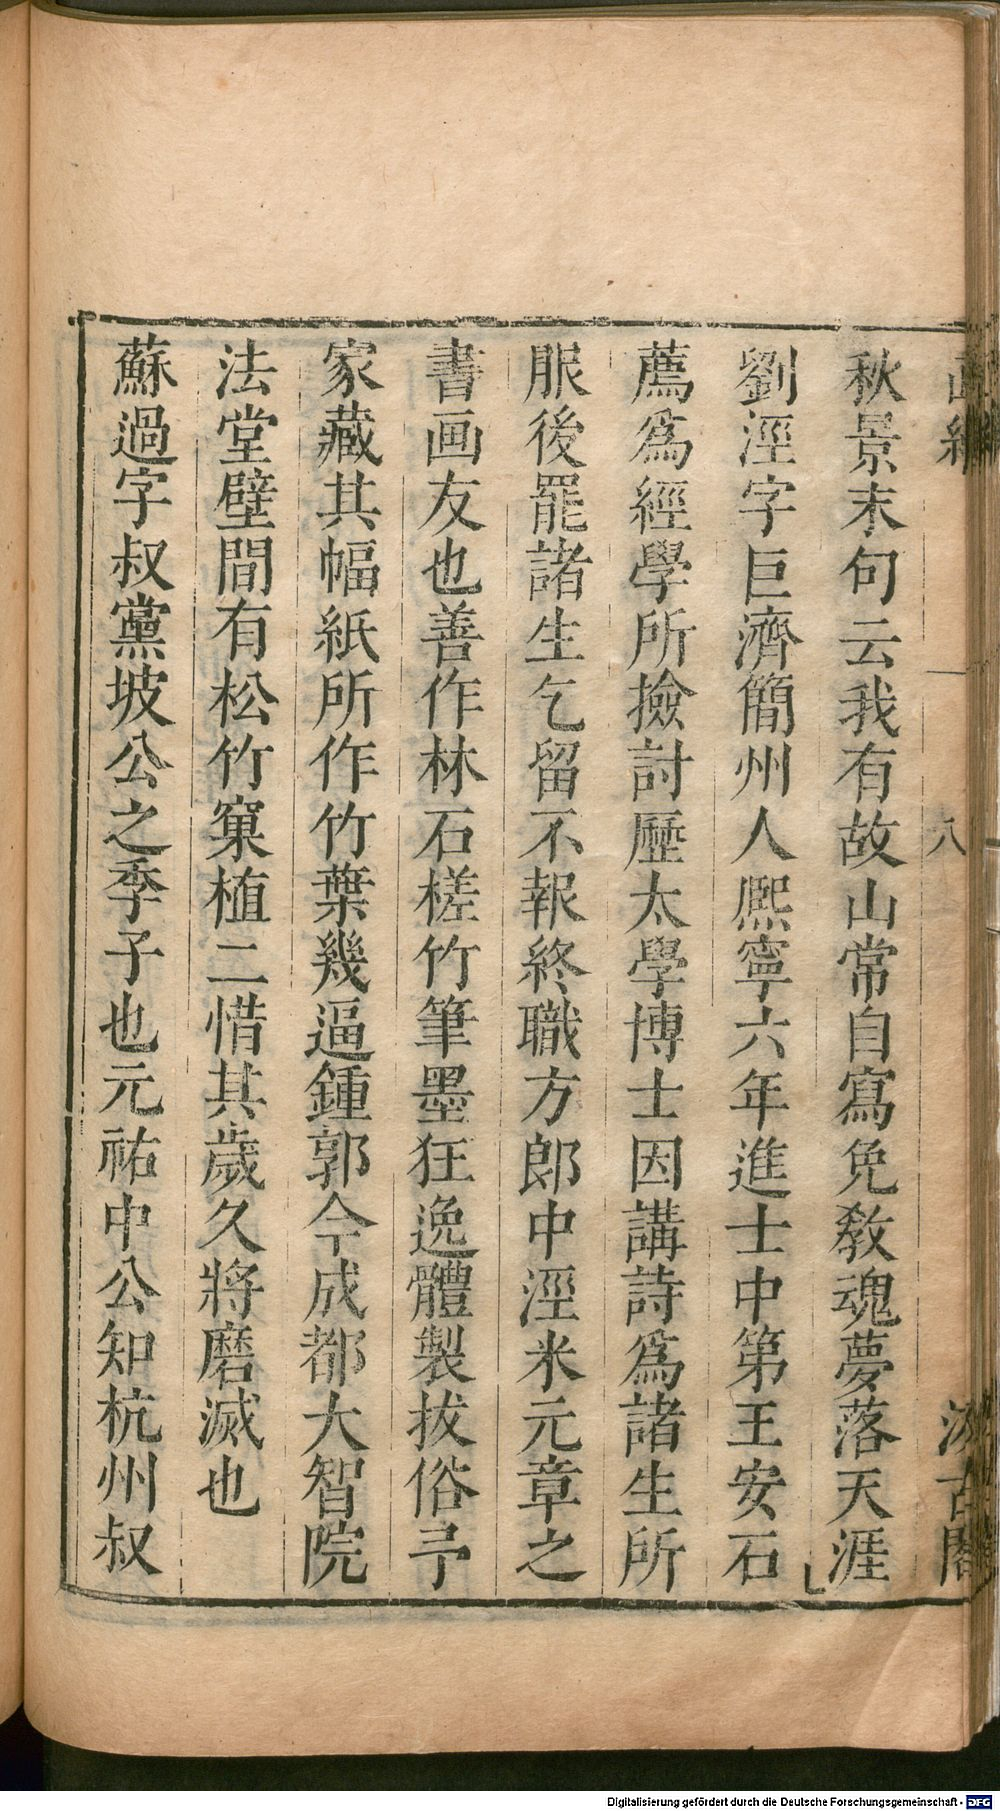 秋景末句云我有故山常自寫免敎魂夢落天涯
劉涇字巨濟簡州人熈寧六年進士中第王安石
薦爲經學所撿討歷太學博士因講詩爲諸生所
服後罷諸生乞留不報終職方郎中涇米元章之
書画友也善作林石槎竹筆墨狂逸體製拔俗予
家藏其幅紙所作竹葉幾逼鍾郭今成都大智院
法堂壁間有松竹窠植二惜其歲久將磨滅也
蘇過字叔黨坡公之季子也元祐中公知杭州叔
八
汲古閣
Digitalisierung gefördert durch die Deutsche Forschungsgemeinschaft - DFG